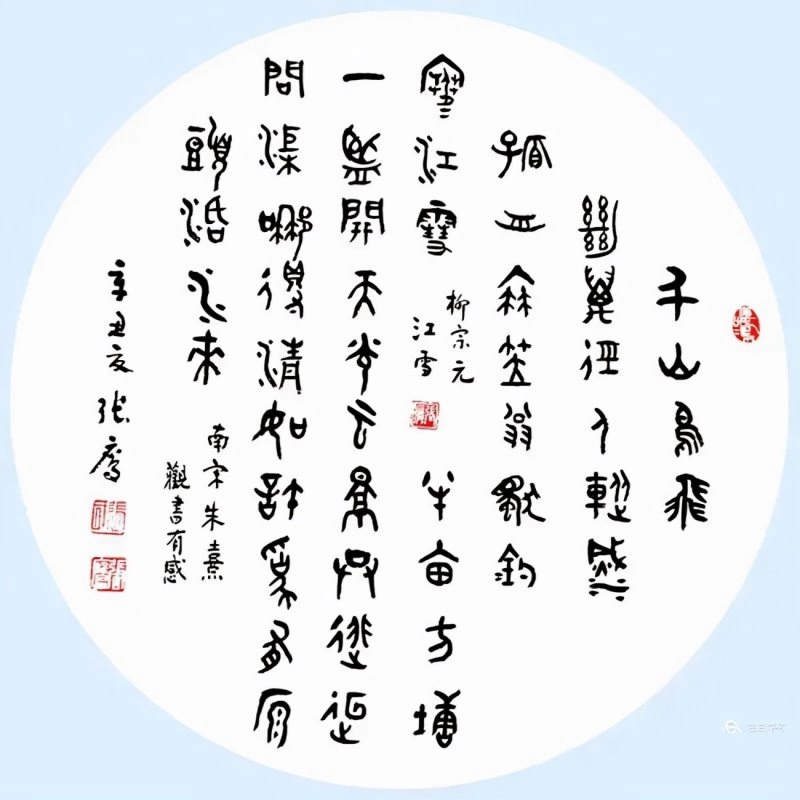 千山鳥飛
絕萬徑人蹤滅
孤舟蓑笠翁獨釣
寒江雪
柳宗元
江雪
半畝方塘
一監開天光云景共徘徊
問渠哪得清如許為有原
頭活水來
南宋朱熹
觀書有感
辛丑夏張